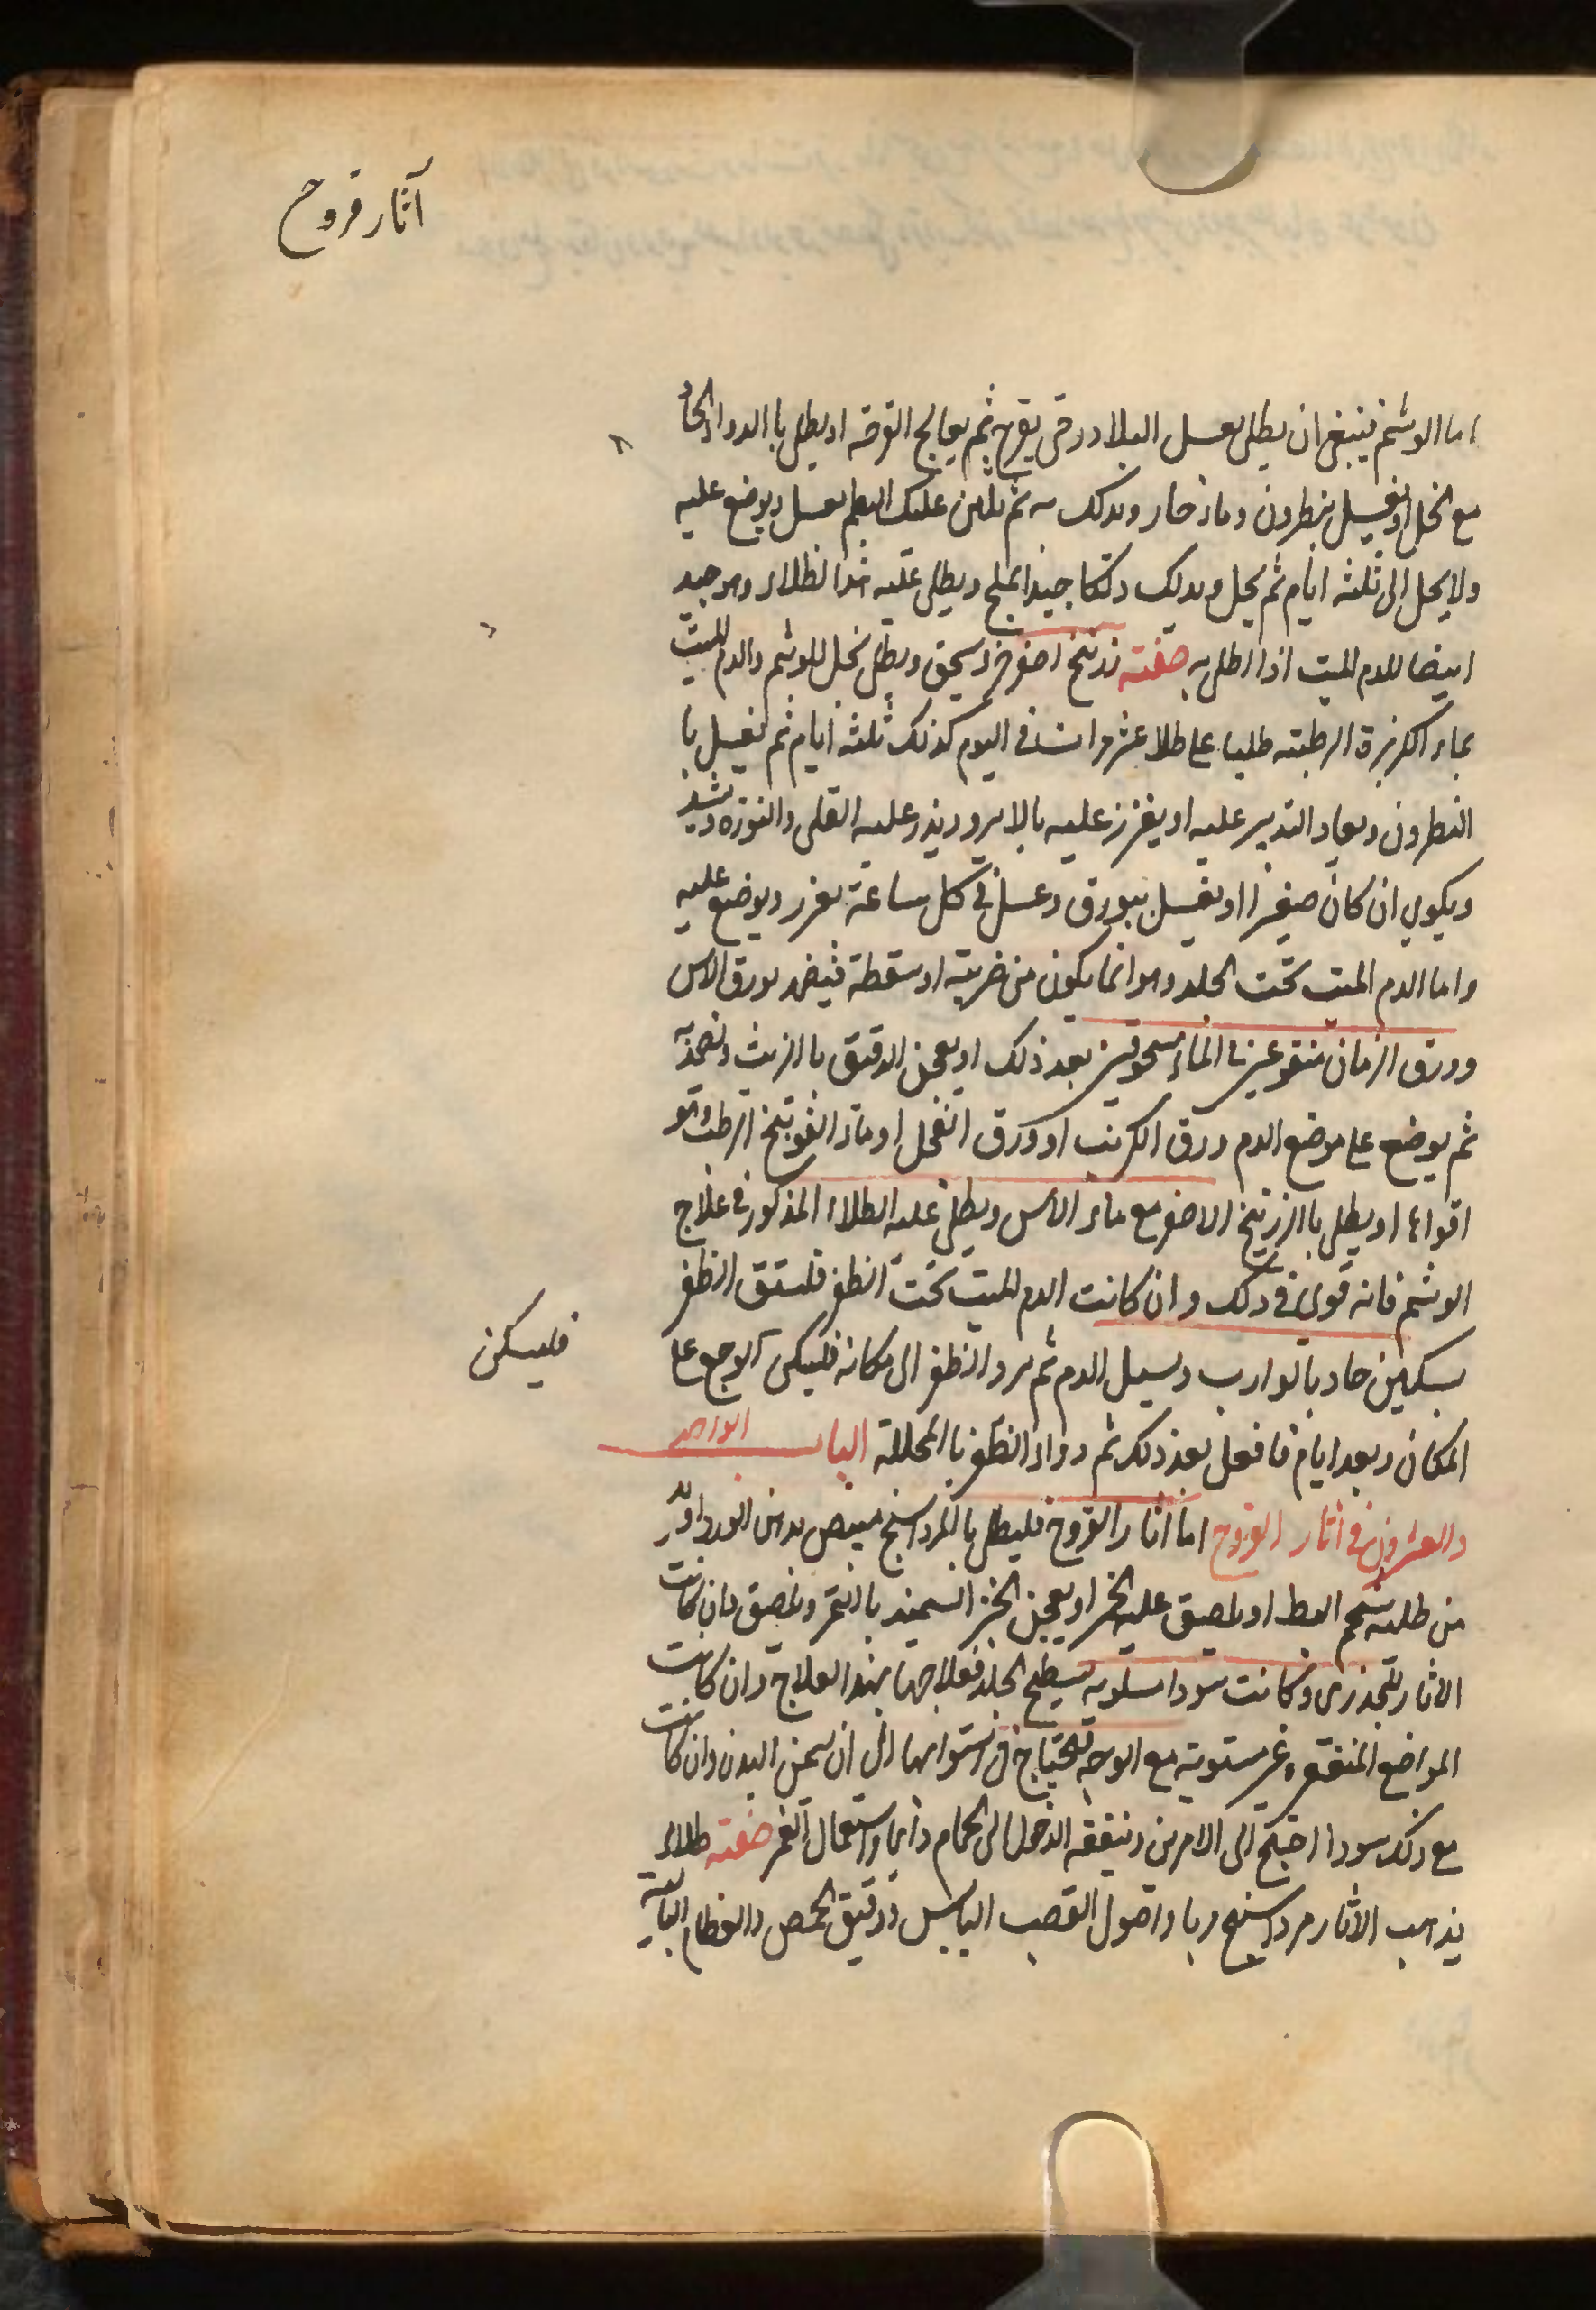 آثار قروح
اما الوشم فينبغى ان يطلى بعسل البلادر حتى يقرح ثم يعالج القرحة او يطلى باالدواء الحاد
مع الخل او يغسل بنطرون وماء حار ويدلك به ثم يلين علك البطم بعسل ويوضع عليه
ولا يحل الى ثلثه ايام ثم يحل ويدلك دلكا جيدا بملح ويطلى عليه هذا الطلاء وهو جيد
ايضا للدم الميت اذا اطلى به صفته زرنيخ اصفر يسحق ويطلى بخل للوشم والدم الميت
بماء الكزبرة الرطبته طليا على طلا عشر مرات فى اليوم كذلك ثلثه ايام ثم يغسل با
النطرون ويعاد التدبير عليه او يغرز عليه بالابر ويذر عليه القلى والنوره ويشد
ويكوي ان كان صغيرا او يغسل ببورق وعسل في كل ساعة يغرز ويوضع عليه
واما الدم الميت تحت الجلد وهو انما يكون من ضربته او سقطة فيضمد بورق الاس
وورق الرمان منقوعين فى الماء مسحوقين بعد ذلك او يعجن الدقيق باالزيت
ثم يوضع على موضع الدم ورق الكرنب او ورق الفجل او ماء الفوتنج الرطب وهو
اقواها او يطلى باالزرنيخ الاصفر مع ماء الاس ويطلى عليه الطلاء المذكور فى علاج
الوشم فانه قوى فى ذلك وان كانت الدم الميت تحت الظفر فلشق الظفر
بسكين حاد بالوارب وسيل الدم ثم يرد الظفر الى مكانه فليكن الوجع على
فليسكن
المكان وبعد ايام فافعل بعد ذلك ثم دواء الظفر باالمحللة الباب الواحد
والعشرون فى اثار القروح اما اثار القروح فليطلى باالمرداسنج مبيض بدهن الورد
من طليه شحم البط او يلصق عليه الخبز او يعجن الخبز السميد باالتمر ويلصق فان كانت
الاثار للجدرى وكانت سودا مستويه بسطح الجلد فعلاجها بهذا العلاج وان كانت
المواضع المنقعره غير مستويته مع الوجه تحتاج فى استوايها الى ان يسمن البدن وان كانت
مع ذلك سودا احتيج الى الامرين وينفعه الدخول الى الحمام دايما واستعمال الغمر صفته طلاء
يذهب الاثار مرداسنج وباء واصول القصب اليابس ودقيق الحمص والعظام الباليه